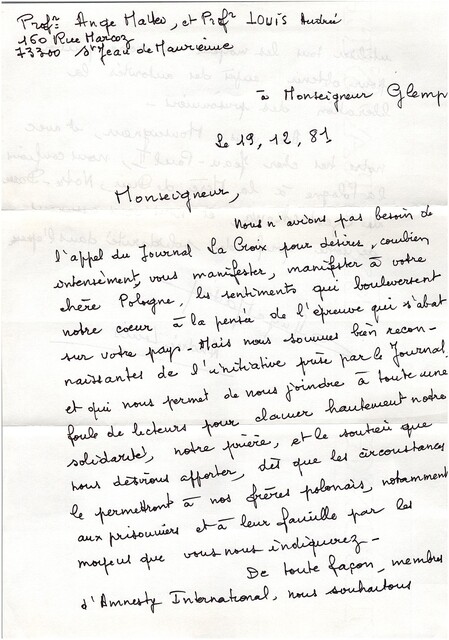 Profr Ange Matteo, et Profr LOUIS André
150 Rue Marcoz
73300 St Jean de Maurienne
à Monseigneur Glemp
le 19, 12, 81
Monseigneur,
Nous n'avions pas besoin de
l'appel du Journal La Croix pour désirer, combien
intensément, vous manifester, manifester à votre
chère Pologne, les sentiments qui bouleversent
notre coeur à la pensée de l'épreuve qui s'abat
sur votre pays - Mais nous sommes bien recon-
naissantes de l'initiative prise par le Journal
et qui nous permet de nous joindre à toute une
foule de lecteurs pour clamer hautement notre
solidarité, notre prière, et le soutien que
nous désirons apporter, dès que les circonstances
le permettront à nos frères polonais, notamment
aux prisonniers et à leur famille par les
moyens que vous nous indiquerez -
De toute façon, membres
d'Amnesty International, nous souhaitons